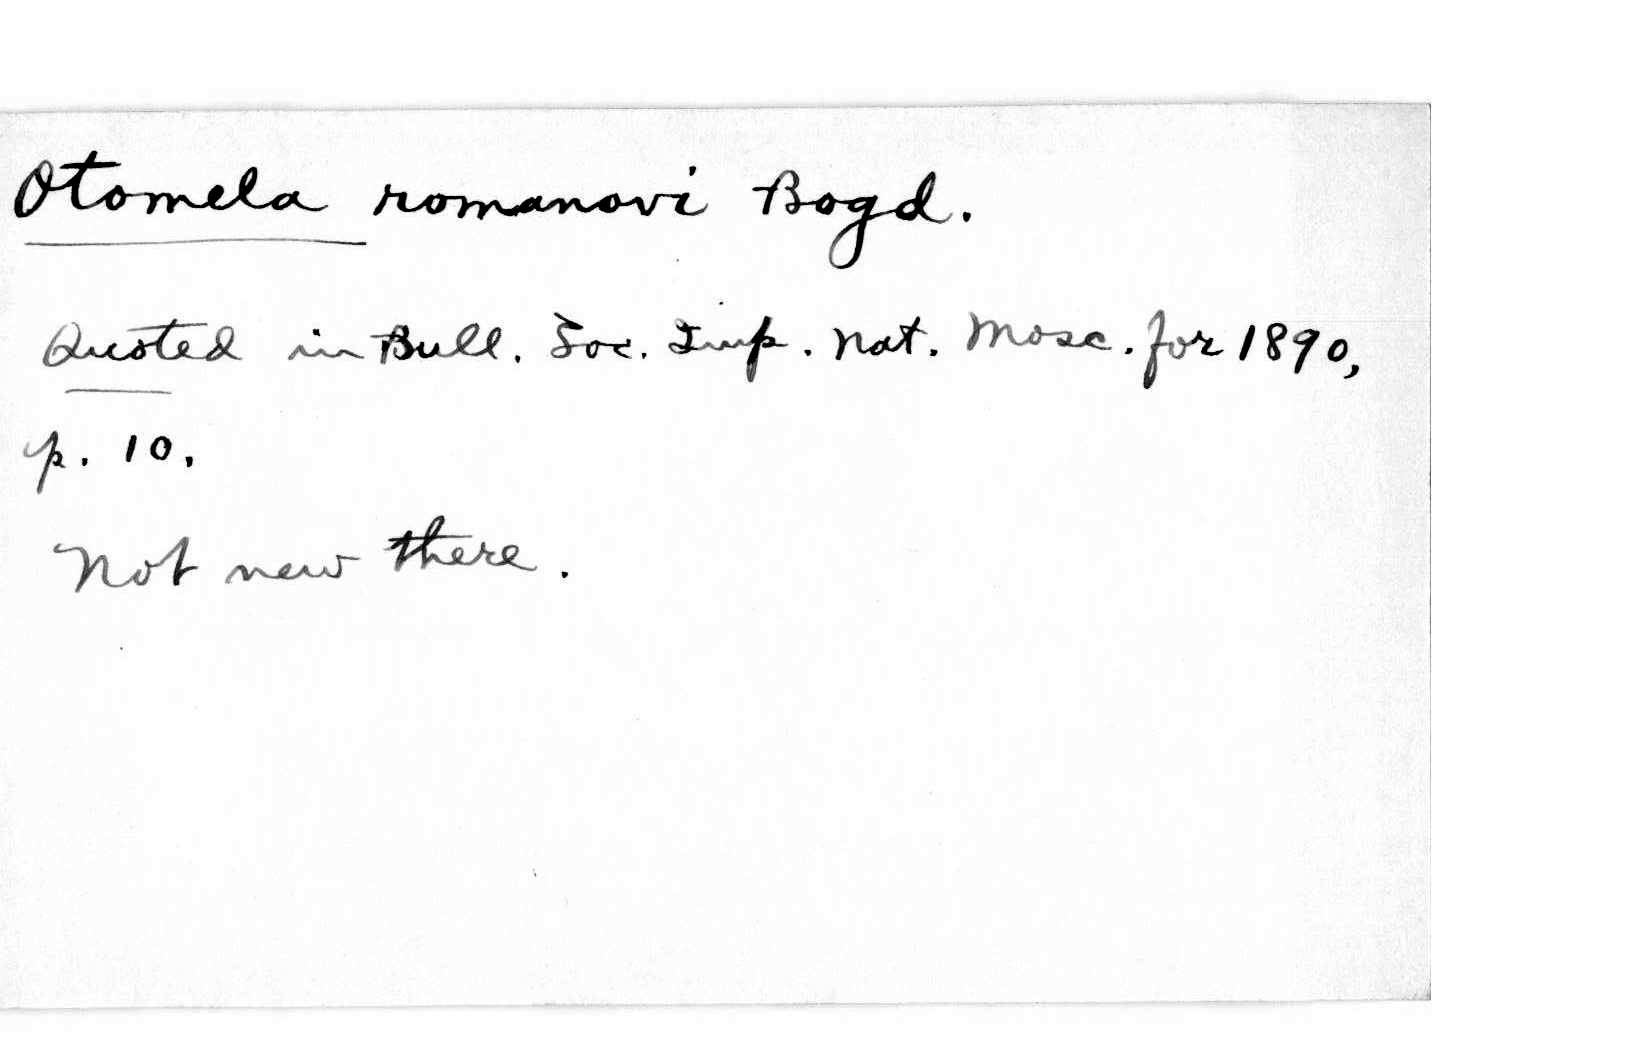 Otomela romanovi Bogd.
Quoted in Bull. Soc. Imp. Nat. Mosc. for 1890,
p. 10.
Not new there.